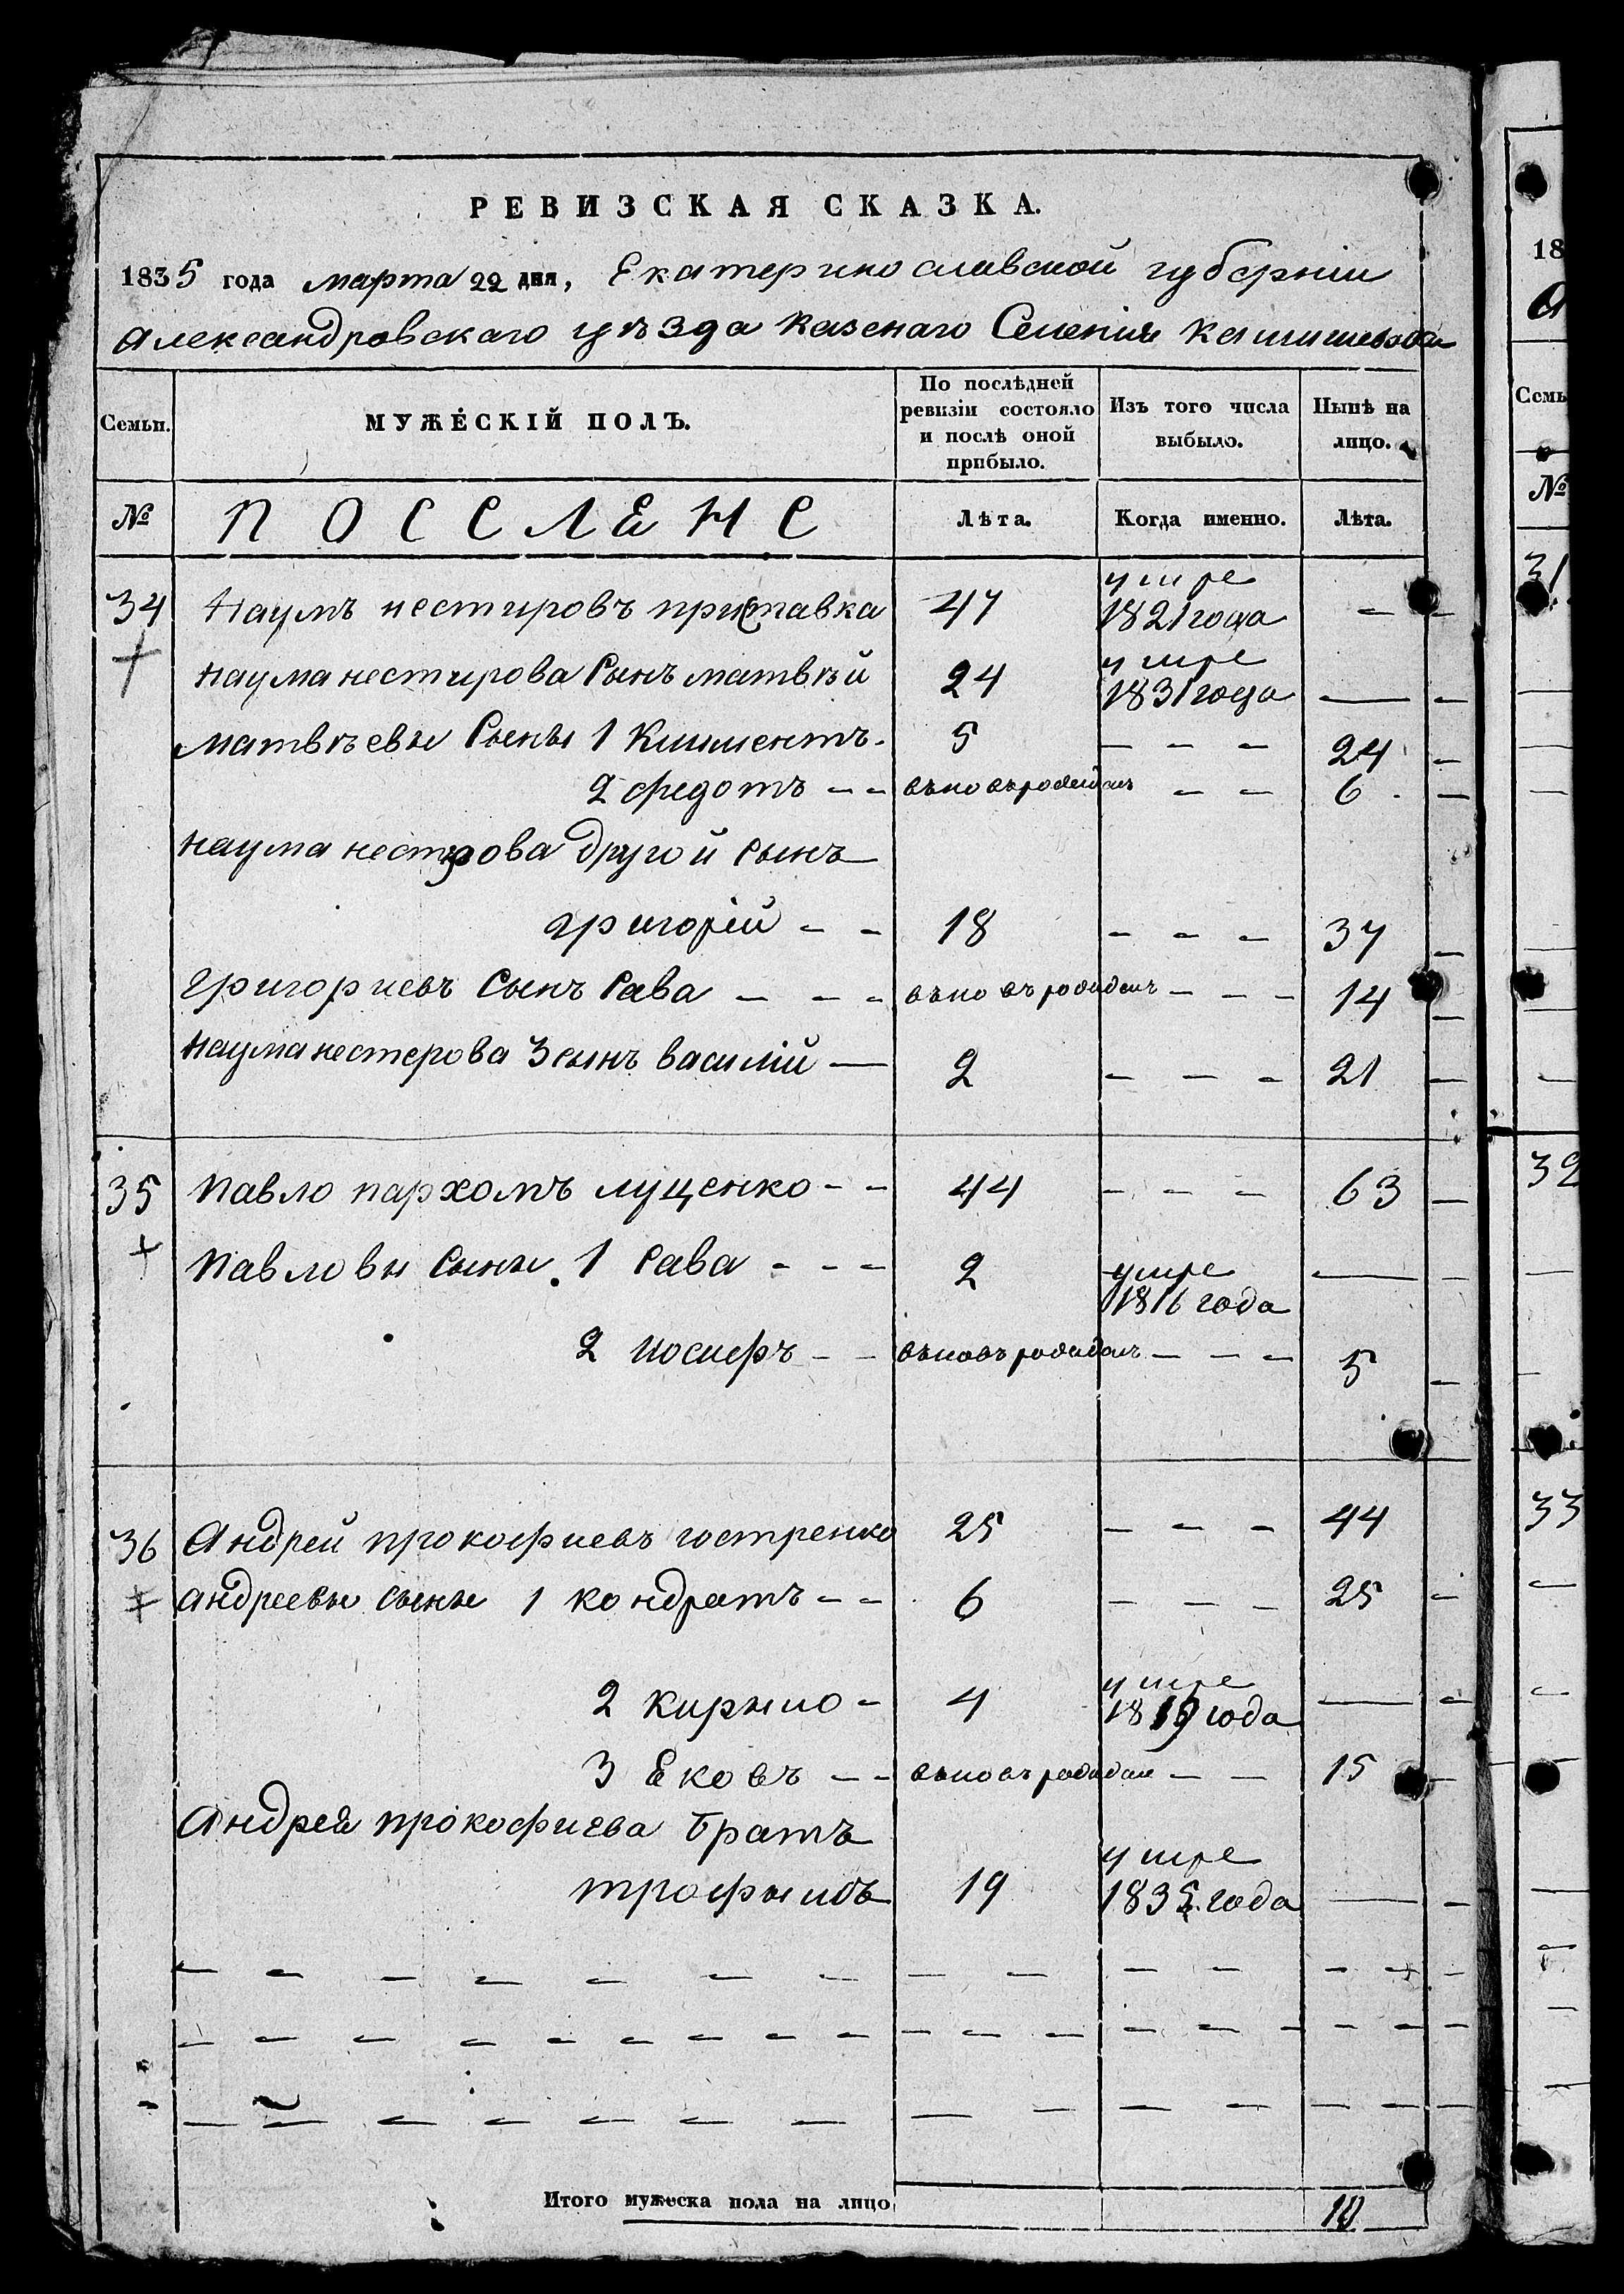 РЕВИЗСКАЯ СКАЗКА.
1835 года марта 22 дня, Екатеринославской губернии
Александровскаго уѣзда Казенаго Селения
Семьи. МУЖЕСКІЙ ПОЛЪ. По послѣдней ревизіи состояло и послѣ оной прибыло. Изъ того числа выбыло. Нынѣ на лицо.
№ ПОСЕЛЕНЕ Лѣта. Когда именно. Лѣта.
34 Наумъ нестировъ приставка 47 умре 1821 года –
наума нестирова Сынъ матвѣй 24 умре 1831 года —
матвѣевы Сыны 1 Климентъ. 5 – – – 24
2 федотъ – – вьновърожден – – 6
наума нестрова другой сынъ
григорій – – 18 – – – 37
григориевъ Сынъ Сава – – – вьновърожден – – – 14
наума нестерова 3 сынъ василій — 2 – – – 21
35 Павло пархомъ луценко – – 44 – – – 63
Павловы Сыны. 1 Сава – – – 2 умре 1816 года —
2 иосифъ – – вьновърожден – – – 5
36 Андрей прокофиевъ гостренко 25 – – – 44
андреевы сыны 1 кондратъ – – 6 – – – 25
2 кирыло – 4 умре 1819 года —
3 Ековъ – – вьновърожден – – 15
Андрея прокофиева братъ
трофымъ 19 умре 1835 года —
Итого мужеска пола на лицо 10
18
Семь
№
31
32
33